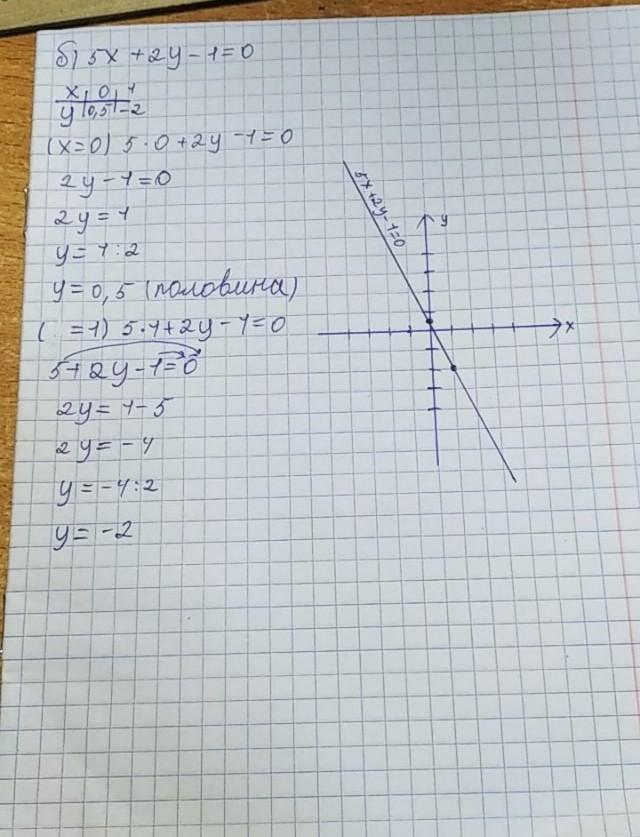 б) 5x + 2y - 1 = 0
x | 0 | 1
y | 0,5 | -2
(x=0) 5·0+2y-1=0
2y-1=0
2y=1
y=1:2
y=0,5 (половина)
( =1) 5·1+2y-1=0
5+2y-1=0
2y=1-5
2y=-4
y=-4:2
y=-2
5x+2y-1=0
y
x